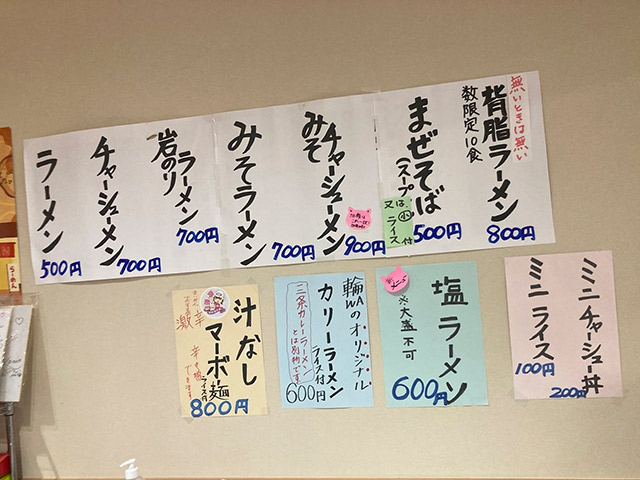 無いときは無い
背脂ラーメン
数限定10食
800円
まぜそば
(スープ
又は小ライス付
500円
みそ
チャーシューメン
900円
みそラーメン
700円
岩のり
ラーメン
700円
チャーシューメン
700円
ラーメン
500円
ミニチャーシュー丼
200円
ミニライス
100円
塩ラーメン
※大盛不可
600円
輪WAのオリジナル
カリーラーメン
ライス付
三条カレーラーメン
とは別物です
600円
汁なし
マーボー麺
ライス付
激辛
800円